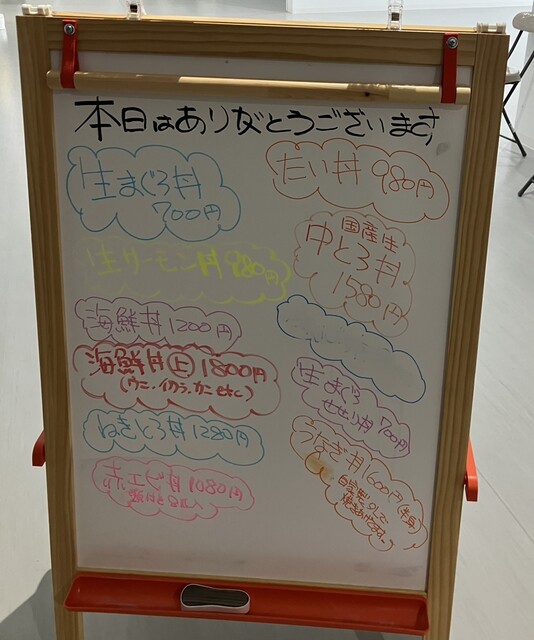 本日はありがとうございます
生まぐろ丼
700円
生サーモン丼 980円
海鮮丼 1200円
海鮮丼(上) 1800円
(ウニ、イクラ、カニ etc)
ねぎとろ丼 1280円
赤エビ丼 1080円
たい丼 980円
国産生
中とろ丼
1580円
生まぐろ
せせり丼 700円
うなぎ丼 1600円
自家製